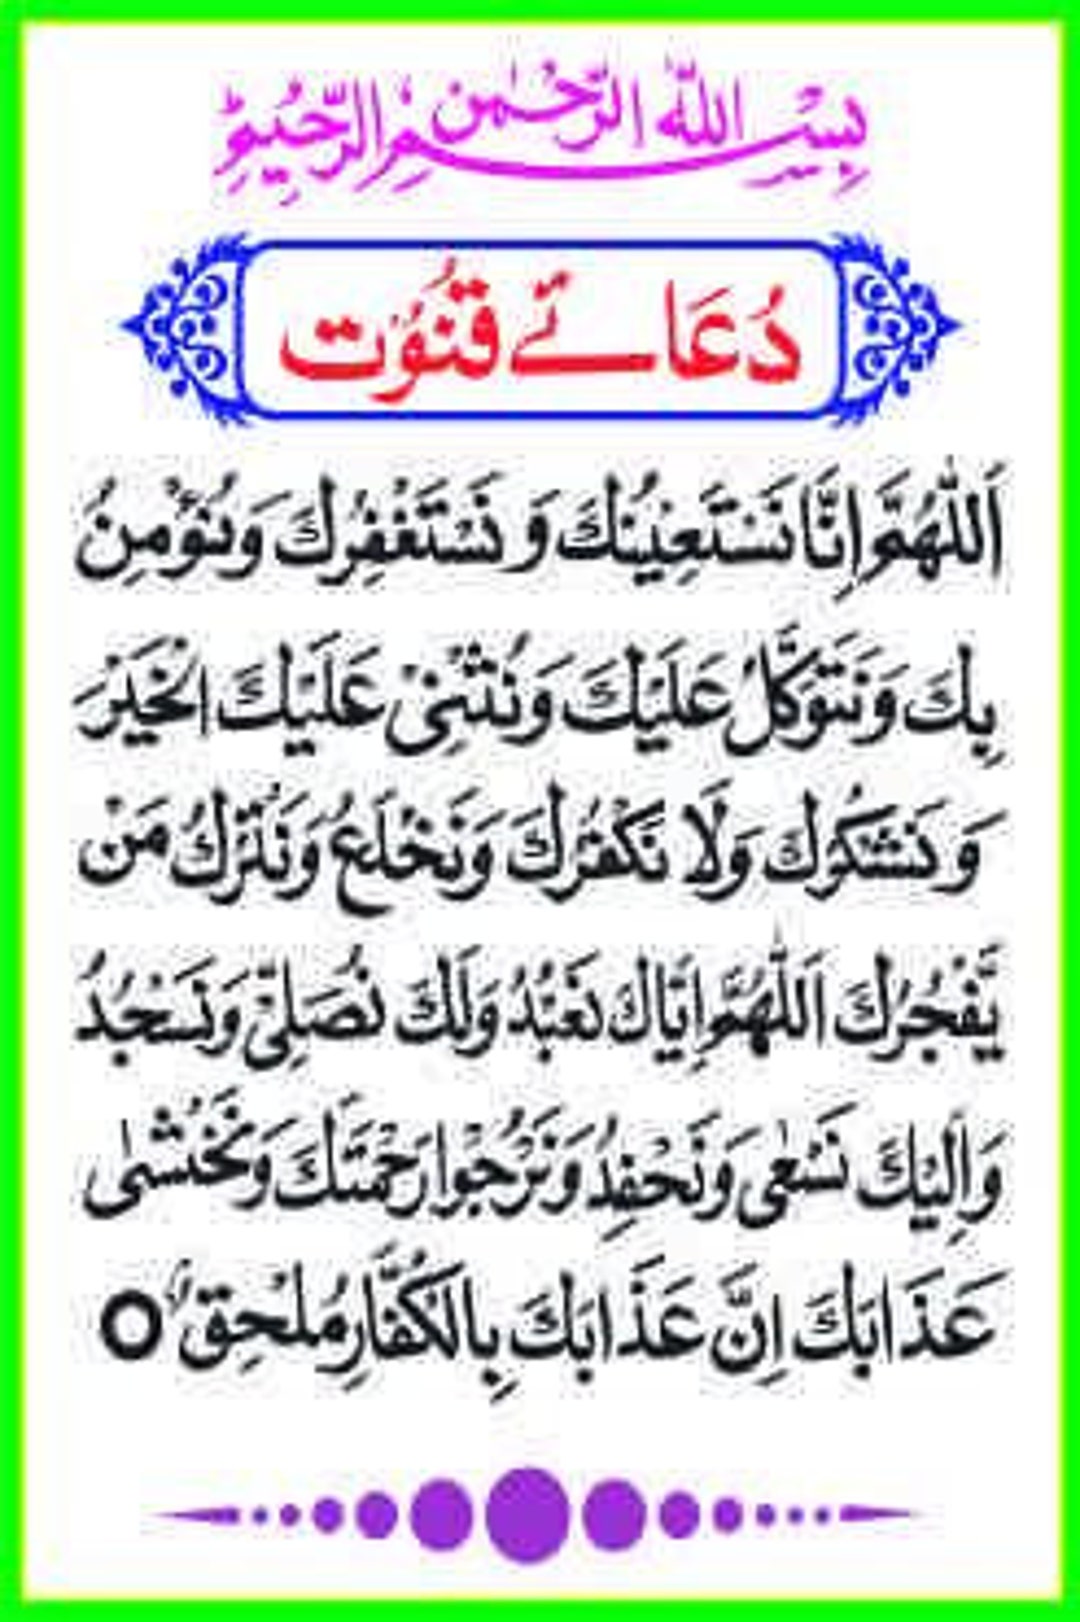 بِسْمِ اللهِ الرَّحْمٰنِ الرَّحِيْمِ
دُعَائے قُنُوْت
اَللّٰهُمَّ اِنَّا نَسْتَعِيْنُكَ وَ نَسْتَغْفِرُكَ وَنُؤْمِنُ
بِكَ وَنَتَوَكَّلُ عَلَيْكَ وَنُثْنِىْ عَلَيْكَ الْخَيْرَ
وَ نَشْكُرُكَ وَلَا نَكْفُرُكَ وَنَخْلَعُ وَنَتْرُكُ مَنْ
يَّفْجُرُكَ اَللّٰهُمَّ اِيَّاكَ نَعْبُدُ وَلَكَ نُصَلِّىْ وَنَسْجُدُ
وَاِلَيْكَ نَسْعٰى وَنَحْفِدُ وَنَرْجُوْا رَحْمَتَكَ وَنَخْشٰى
عَذَابَكَ اِنَّ عَذَابَكَ بِالْكُفَّارِ مُلْحِقٌ